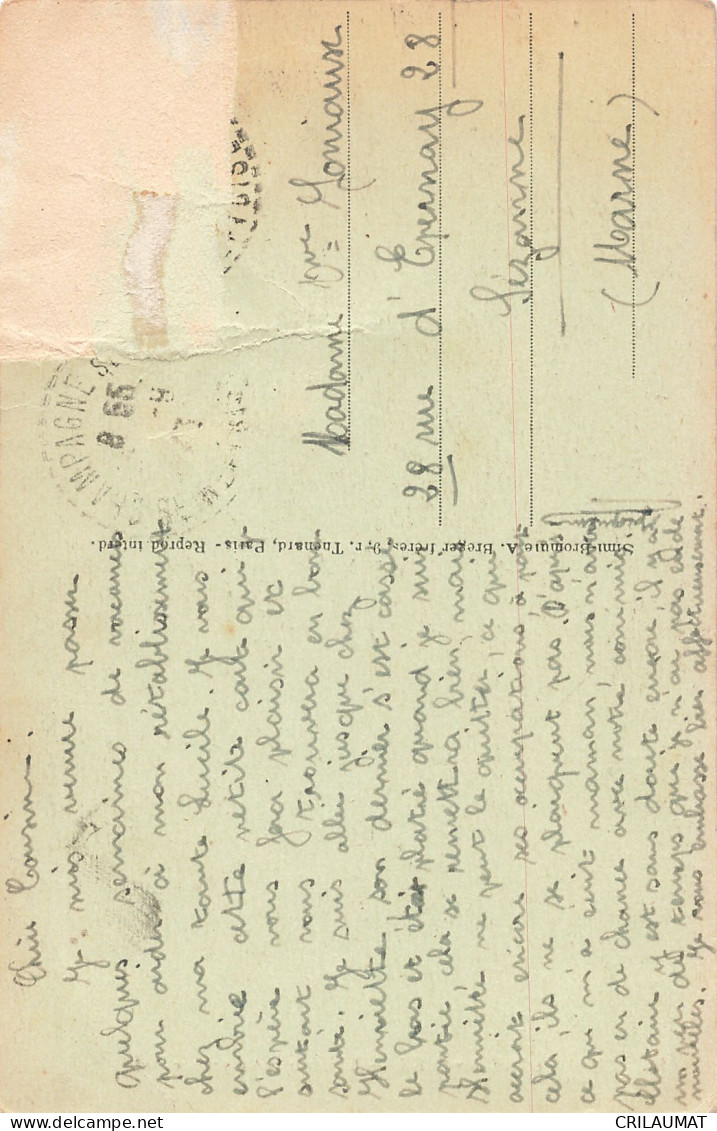 Chère Cousine.
Je suis venue passer
quelques semaines de vacances
pour aider à mon rétablissement
chez ma tante Lucile. Je vous
envoie cette petite carte qui
j'espère vous fera plaisir et
surtout vous trouvera en bonne
santé. Je suis allée jusque chez
Henriette son dernier s'est cassé
le bras et était platré quand je suis
partie, cela se remettra bien, mais
Henriette ne peut le quitter, ce qui
accroit encore ses occupations à part
cela ils ne se plaignent pas. D'après
ce qui m'a écrit maman, nous n'avons
pas eu de chance avec notre commis
il y est sans doute encore il y a
du temps que je n'ai pas eu de
nouvelles. Je vous embrasse bien affectueusement.
Simi-Bromure A. Breger frères, 9, r. Thénard, Paris - Reprod. interd.
CHAMPAGNE S
8 55
Madame Vve Moniaux
28 rue d'Epernay 28
Sézanne
(Marne)
CRILAUMAT